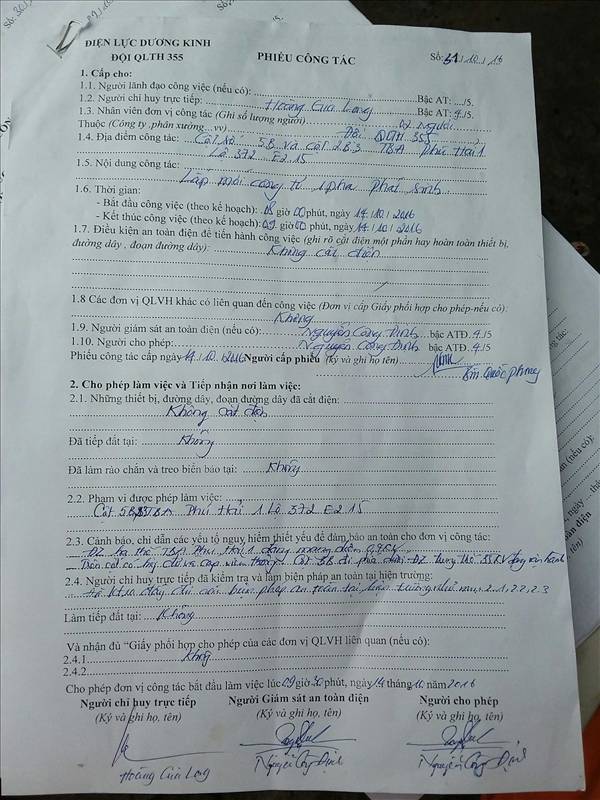 ĐIỆN LỰC DƯƠNG KINH
ĐỘI QLTH 355
PHIẾU CÔNG TÁC
Số: 31/10/16
1. Cấp cho:
1.1. Người lãnh đạo công việc (nếu có): Bậc AT: /5.
1.2. Người chỉ huy trực tiếp: Hoàng Cửu Long Bậc AT: 4/5.
1.3. Nhân viên đơn vị công tác (Ghi số lượng người) 02 Người
Thuộc (Công ty, phân xưởng...vv) Đội QLTH 355
1.4. Địa điểm công tác: Cột số 5B và cột 2B3 TBA Phú Hải 1
Lộ 372 E2.15
1.5. Nội dung công tác:
Lắp mới công tơ 1pha phát sinh
1.6. Thời gian:
- Bắt đầu công việc (theo kế hoạch): 08 giờ 00 phút, ngày 14/10/2016
- Kết thúc công việc (theo kế hoạch): 09 giờ 00 phút, ngày 14/10/2016
1.7. Điều kiện an toàn điện để tiến hành công việc (ghi rõ cắt điện một phần hay hoàn toàn thiết bị,
đường dây, đoạn đường dây): Không cắt điện
1.8 Các đơn vị QLVH khác có liên quan đến công việc (Đơn vị cấp Giấy phối hợp cho phép-nếu có):
Không
1.9. Người giám sát an toàn điện (nếu có): Nguyễn Công Định bậc ATĐ 4/5
1.10. Người cho phép: Nguyễn Công Định bậc ATĐ 4/5
Phiếu công tác cấp ngày 14/10/2016 Người cấp phiếu (Ký và ghi họ, tên)
Quốc Phong
2. Cho phép làm việc và Tiếp nhận nơi làm việc:
2.1. Những thiết bị, đường dây, đoạn đường dây đã cắt điện:
Không cắt điện
Đã tiếp đất tại: Không
Đã làm rào chắn và treo biển báo tại: Không
2.2. Phạm vi được phép làm việc:
Cột 5B TBA Phú Hải 1 Lộ 372 E2 15
2.3. Cảnh báo, chỉ dẫn các yếu tố nguy hiểm thiết yếu để đảm bảo an toàn cho đơn vị công tác:
ĐZ hạ thế TBA Phú Hải 1 đang mang điện 0,4KV
Trên cột có hạ thế và cáp viễn thông Cột 5B phía trên ĐZ trung thế 35KV đang vận hành
2.4. Người chỉ huy trực tiếp đã kiểm tra và làm biện pháp an toàn tại hiện trường:
biện pháp an toàn tại hiện trường như mục 2.1, 2.2, 2.3
Làm tiếp đất tại: Không
Và nhận đủ “Giấy phối hợp cho phép của các đơn vị QLVH liên quan (nếu có):
2.4.1. Không
2.4.2.
Cho phép đơn vị công tác bắt đầu làm việc lúc 09 giờ 30 phút, ngày 14 tháng 10 năm 2016
Người chỉ huy trực tiếp Người Giám sát an toàn điện Người cho phép
(Ký và ghi họ, tên) (Ký và ghi họ, tên) (Ký và ghi họ, tên)
Hoàng Cửu Long Nguyễn Công Định Nguyễn Công Định